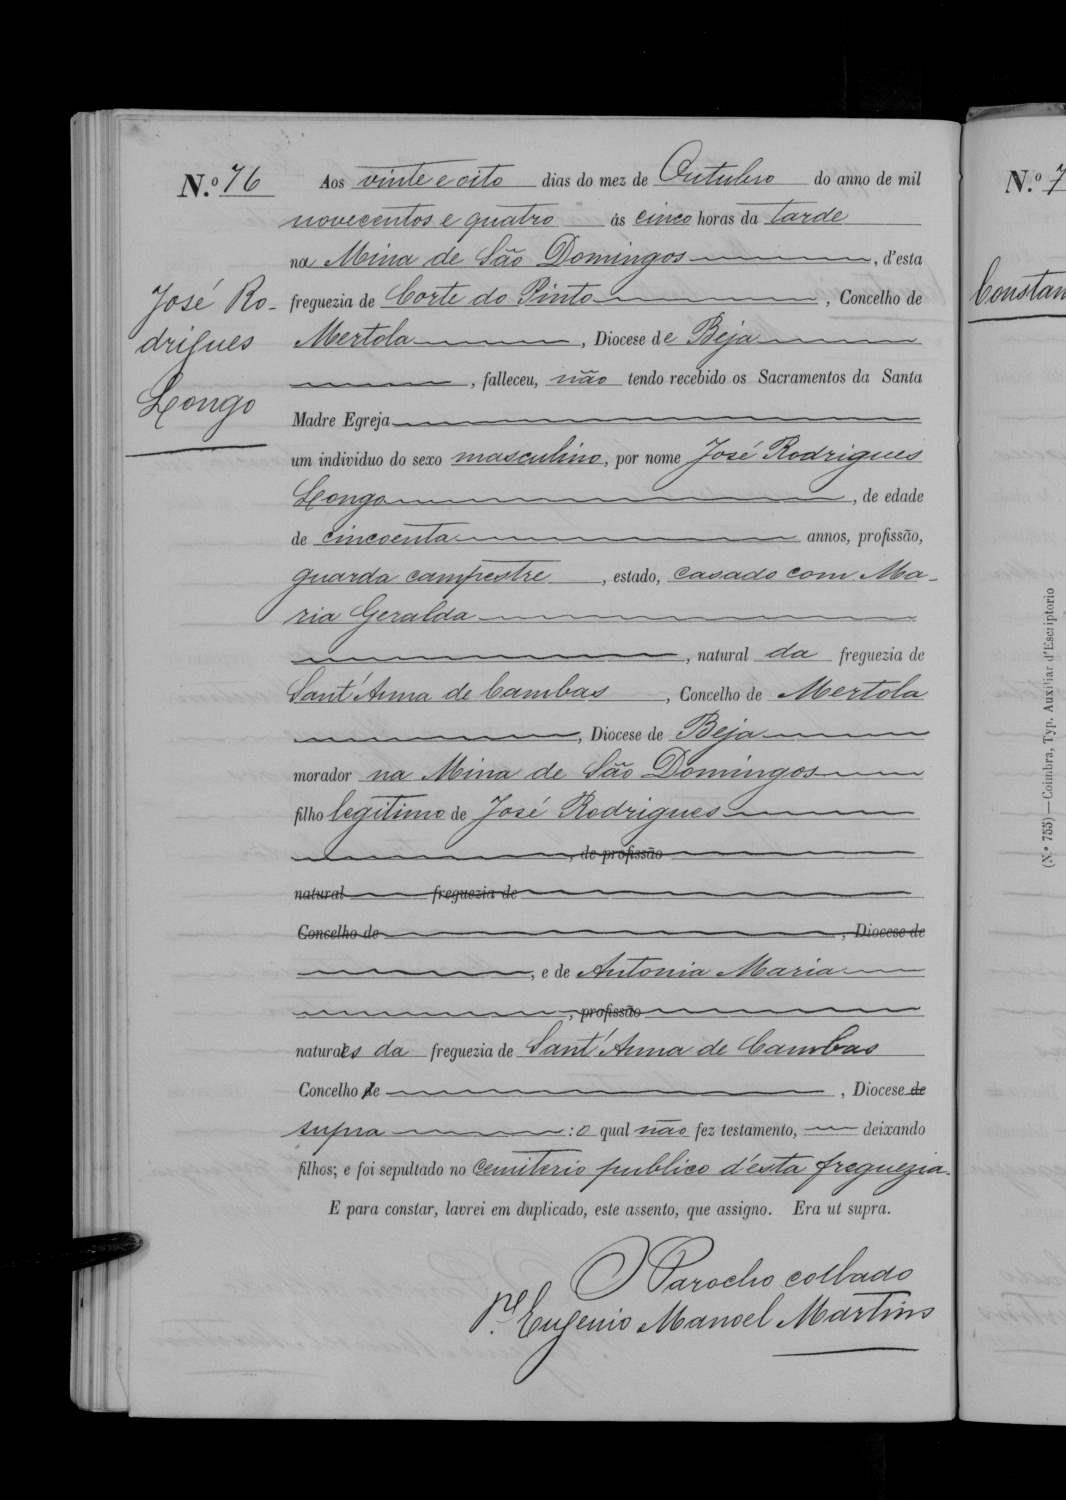 N.º 76
José Ro-
drigues
Longo
Aos vinte e oito dias do mez de Outubro do anno de mil
novecentos e quatro ás cinco horas da tarde
na Mina de São Domingos, d'esta
freguezia de Corte do Pinto, Concelho de
Mertola, Diocese de Beja
, falleceu, não tendo recebido os Sacramentos da Santa
Madre Egreja
um individuo do sexo masculino, por nome José Rodrigues
Longo, de edade
de cincoenta annos, profissão,
guarda campestre, estado, casado com Ma-
ria Geralda
, natural da freguezia de
Sant'Anna de Cambas, Concelho de Mertola
, Diocese de Beja
morador na Mina de São Domingos
filho legitimo de José Rodrigues
, de profissão
natural freguezia de
Concelho de , Diocese de
, e de Antonia Maria
, profissão
naturaes da freguezia de Sant'Anna de Cambas
Concelho e , Diocese de
supra : o qual não fez testamento, deixando
filhos; e foi sepultado no cemiterio publico d'esta freguezia.
E para constar, lavrei em duplicado, este assento, que assigno. Era ut supra.
O Parocho collado
P.e Eugenio Manoel Martins
N.º 7
Constan
(N.º 755)—Coimbra, Typ. Auxiliar d'Escriptorio